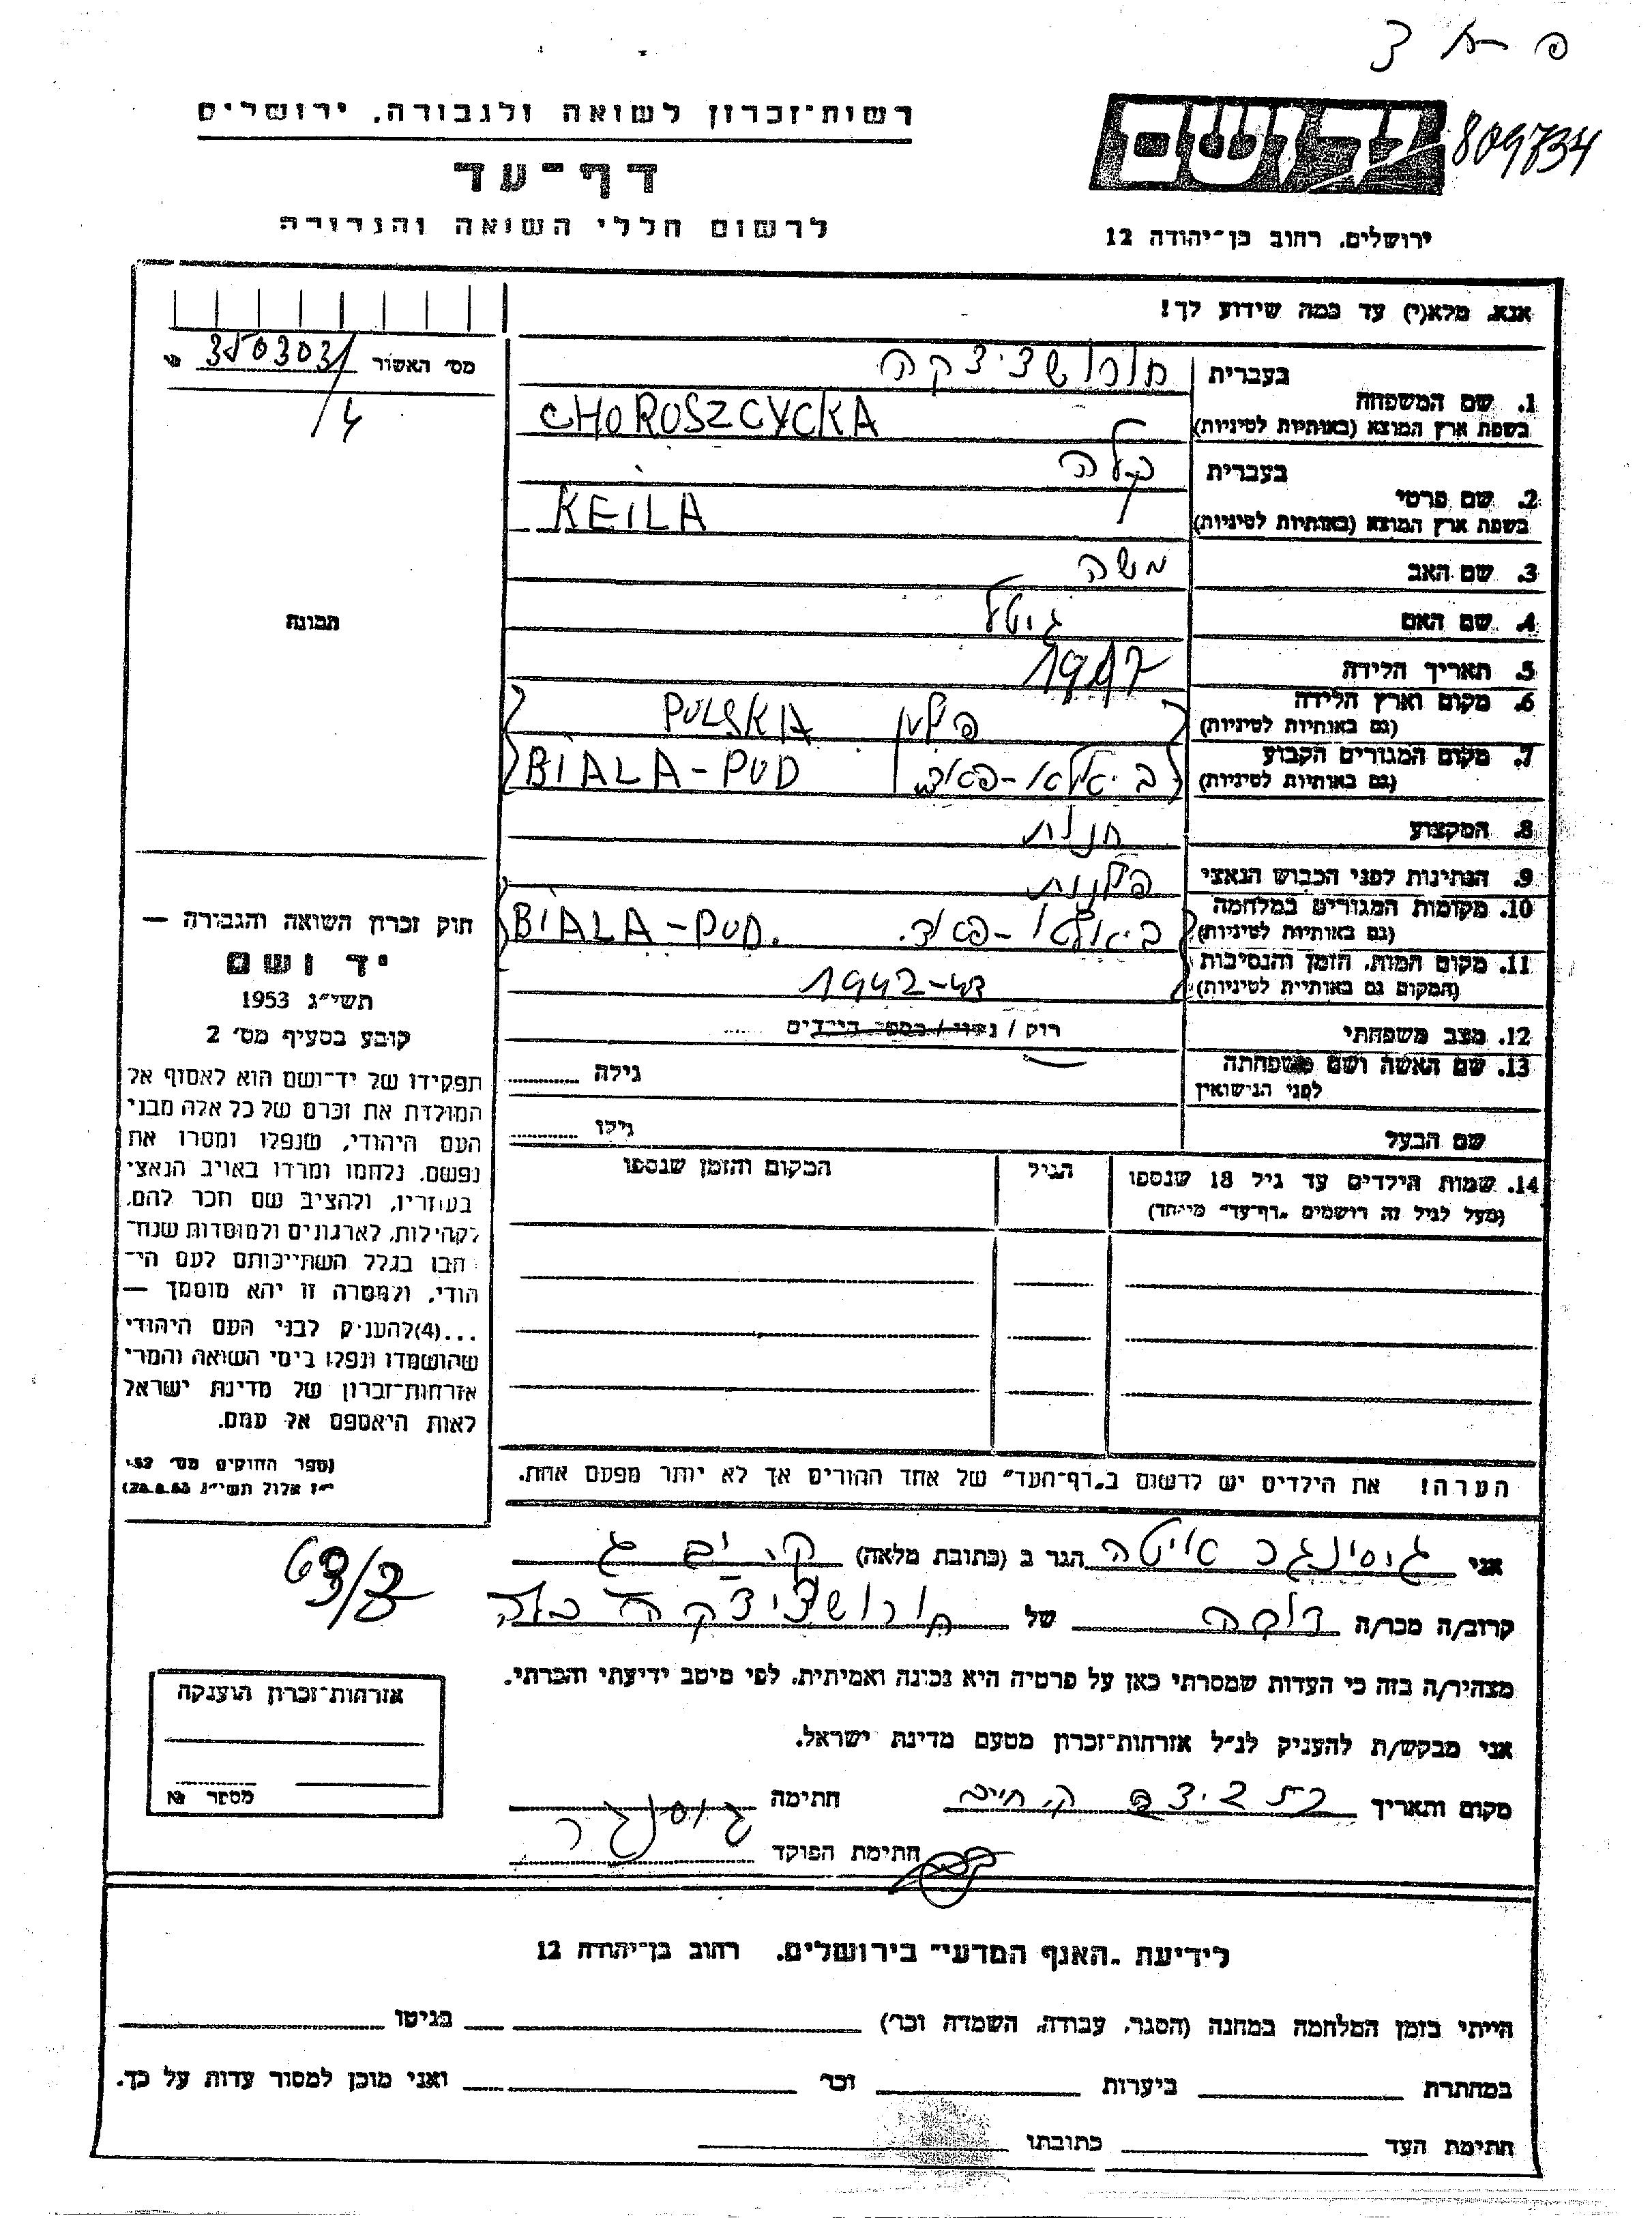 פ - א ד
809734
יד ושם
ירושלים, רחוב בן־יהודה 12
רשות־זכרון לשואה ולגבורה, ירושלים
דף־עד
לרשום חללי השואה והגבורה
אנא, מלא(י) עד כמה שידוע לך!
מס׳ האשור 350303/4
1. שם המשפחה בעברית חורושציצקה
בשפת ארץ המוצא (באותיות לטיניות) CHOROSZCYCKA
2. שם פרטי בעברית קלה
בשפת ארץ המוצא (באותיות לטיניות) KEILA
3. שם האב משה
4. שם האם גיטל
5. תאריך הלידה 1917
6. מקום וארץ הלידה פולין POLSKA
(גם באותיות לטיניות)
7. מקום המגורים הקבוע ביאלא-פאד. BIALA-POD
(גם באותיות לטיניות)
8. המקצוע
9. הנתינות לפני הכבוש הנאצי פולנית
10. מקומות המגורים במלחמה ביאלא-פאד. BIALA-POD.
(גם באותיות לטיניות)
11. מקום המות, הזמן והנסיבות 1942-43
(המקום גם באותיות לטיניות)
12. מצב משפחתי רוק / נשוי / מספר הילדים
13. שם האשה ושם משפחתה גילה
לפני הנישואין
שם הבעל גילו
14. שמות הילדים עד גיל 18 שנספו הגיל המקום והזמן שנספו
(מעל לגיל זה רושמים „דף־עד״ מיוחד)
הערה! את הילדים יש לרשום ב„דף־העד״ של אחד ההורים אך לא יותר מפעם אחת.
תמונה
חוק זכרון השואה והגבורה —
יד ושם
תשי״ג 1953
קובע בסעיף מס׳ 2
תפקידו של יד־ושם הוא לאסוף אל
המולדת את זכרם של כל אלה מבני
העם היהודי, שנפלו ומסרו את
נפשם, נלחמו ומרדו באויב הנאצי
בעוזריו, ולהציב שם וזכר להם,
לקהילות, לארגונים ולמוסדות שנח־
רבו בגלל השתייכותם לעם הי־
הודי, ולמטרה זו יהא מוסמך —
...(4)להעניק לבני העם היהודי
שהושמדו ונפלו בימי השואה והמרי
אזרחות־זכרון של מדינת ישראל
לאות היאספם אל עמם.
(ספר החוקים מס׳ 132
י״ז אלול תשי״ג 28.8.53)
69/3
אני גיסינגר איטה הגר ב (כתובת מלאה) ק. ים ג
קרוב/ה מכר/ה דודה של חורושציצקה קלה
מצהיר/ה בזה כי העדות שמסרתי כאן על פרטיה היא נכונה ואמיתית, לפי מיטב ידיעתי והכרתי.
אני מבקש/ת להעניק לנ״ל אזרחות־זכרון מטעם מדינת ישראל.
מקום ותאריך ק. חיים חתימה גיסינגר
חתימת הפוקד
אזרחות־זכרון הוענקה
מספר №
לידיעת „האגף המדעי״ בירושלים, רחוב בן־יהודה 12
הייתי בזמן המלחמה במחנה (הסגר, עבודה, השמדה וכר׳) בגיטו
במחתרת ביערות וכר׳ ואני מוכן למסור עדות על כך.
חתימת העד כתובתו